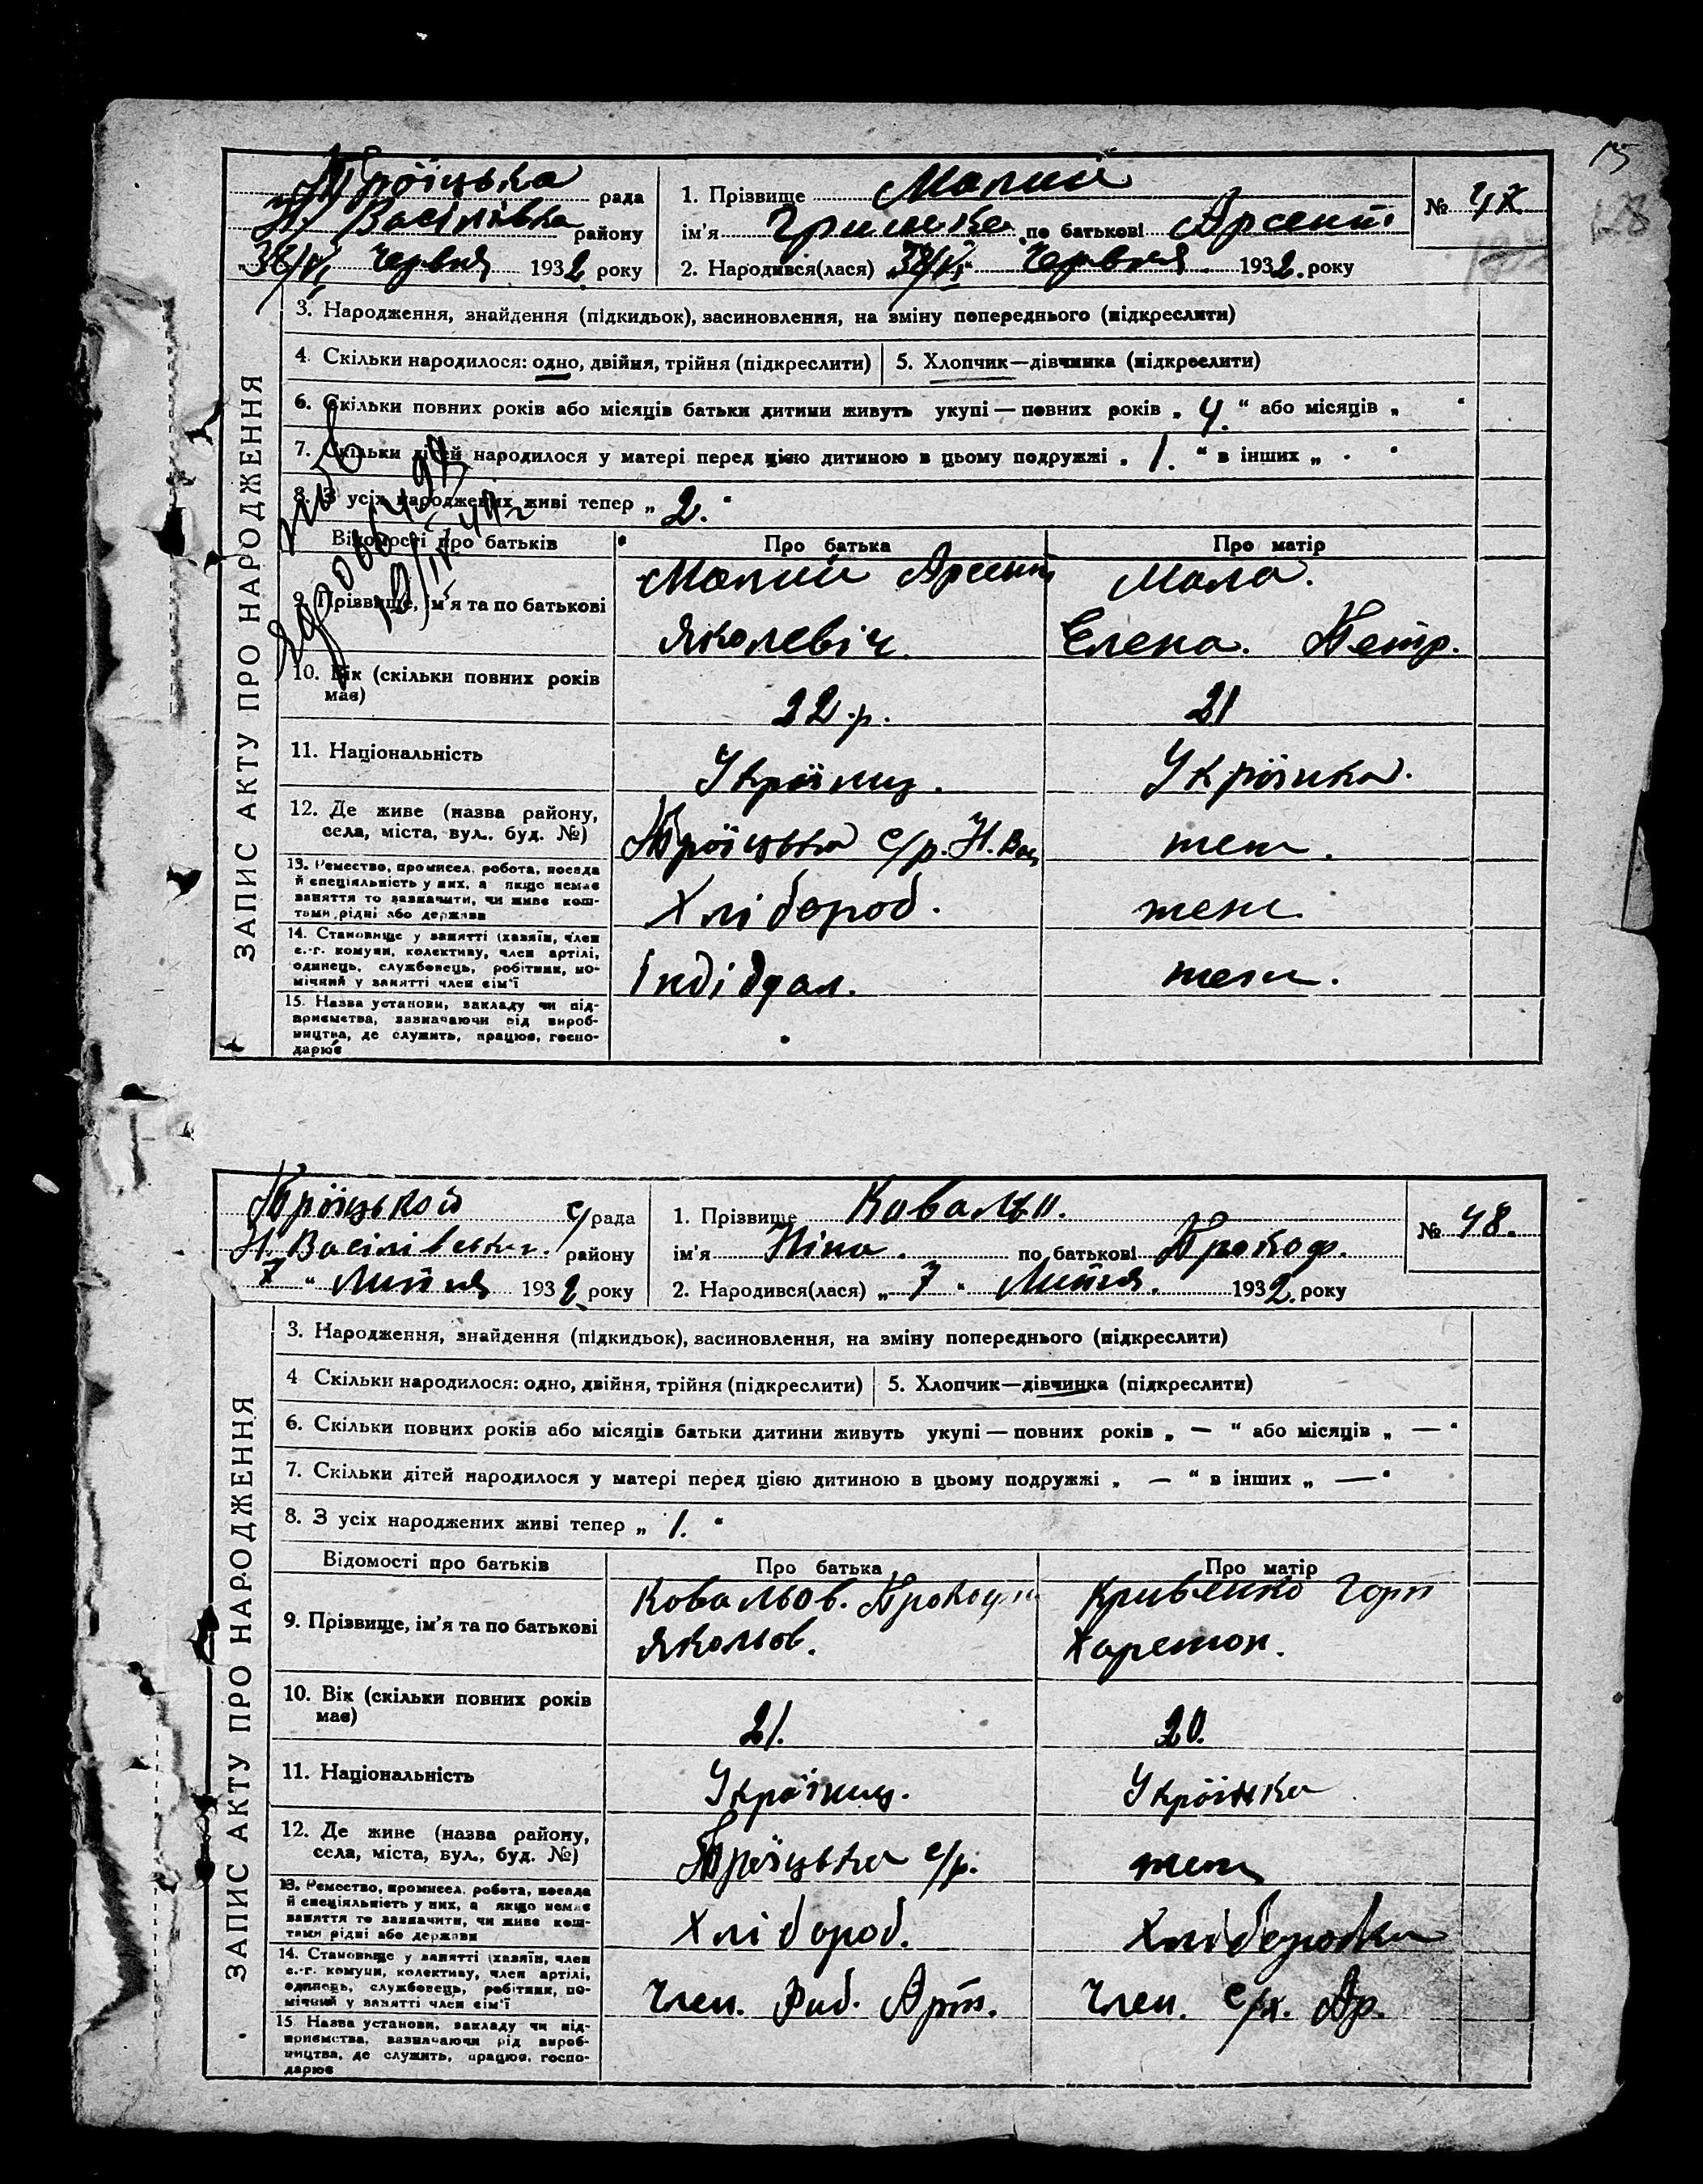 15
128
Троїцька рада
Н Васілівка району
Червня 1932 року
1. Прізвище Малий
ім'я по батькові Арсент.
2. Народився(лася) Червня 1932. року
№ 47.
ЗАПИС АКТУ ПРО НАРОДЖЕННЯ
3. Народження, знайдення (підкидьок), засиновлення, на зміну попереднього (підкреслити)
4. Скільки народилося: одно, двійня, трійня (підкреслити) 5. Хлопчик—дівчинка (підкреслити)
6. Скільки повних років або місяців батьки дитини живуть укупі — повних років „ 4. “ або місяців „ “
7. Скільки дітей народилося у матері перед цією дитиною в цьому подружжі „ 1. “ в інших „ “
8. З усіх народжених живі тепер „ 2. “
Відомості про батьків Про батька Про матір
9. Прізвище, ім'я та по батькові
Малий Мала.
Яколевіч Елена. Петр.
10. Вік (скільки повних років має) 22 р. 21
11. Національність Україниц. Українка.
12. Де живе (назва району,
села, міста, вул., буд. №) Троїцька с/р. Н. Вас теж.
13. Ремество, промисел, робота, посада
й спеціяльність у них, а якщо немає
заняття то зазначити, чи живе кош-
тами рідні або держави Хлібороб. теж
14. Становище у занятті (хазяїн, член
с.-г. комуни, колективу, член артілі,
одинець, службовець, робітник, по-
мічний у занятті член сім'ї Індідуал. теж.
15. Назва установи, закладу чи під-
приємства, зазначаючи рід вироб-
ництва, де служить, працює, госпо-
дарює
Троїцькой с/рада
Н. Васілівськ. району
7 “ Липня 1932. року
1. Прізвище Ковальо.
ім'я Ніна. по батькові Прокоф.
2. Народився(лася) „ 7 “ Липня. 1932. року
№ 48.
ЗАПИС АКТУ ПРО НАРОДЖЕННЯ
3. Народження, знайдення (підкидьок), засиновлення, на зміну попереднього (підкреслити)
4 Скільки народилося: одно, двійня, трійня (підкреслити) 5. Хлопчик—дівчинка (підкреслити)
6. Скільки повних років або місяців батьки дитини живуть укупі — повних років „ — “ або місяців „ — “
7. Скільки дітей народилося у матері перед цією дитиною в цьому подружжі „ — “ в інших „ — “
8. З усіх народжених живі тепер „ 1. “
Відомості про батьків Про батька Про матір
9. Прізвище, ім'я та по батькові
Ковальов. Кривенко Горп
Якольов. Харетон.
10. Вік (скільки повних років має) 21. 20.
11. Національність Україниц. Українка
12. Де живе (назва району,
села, міста, вул., буд. №) Троїцька с/р. теж
13. Ремество, промисел, робота, посада
й спеціяльність у них, а якщо немає
заняття то зазначити, чи живе кош-
тами рідні або держави Хлібороб. Хліборобка
14. Становище у занятті (хазяїн, член
с.-г. комуни, колективу, член артілі,
одинець, службовець, робітник, по-
мічний у занятті член сім'ї Член. Риб. Арт. Член. с/х. Ар.
15. Назва установи, закладу чи під-
приємства, зазначаючи рід вироб-
ництва, де служить, працює, госпо-
дарює